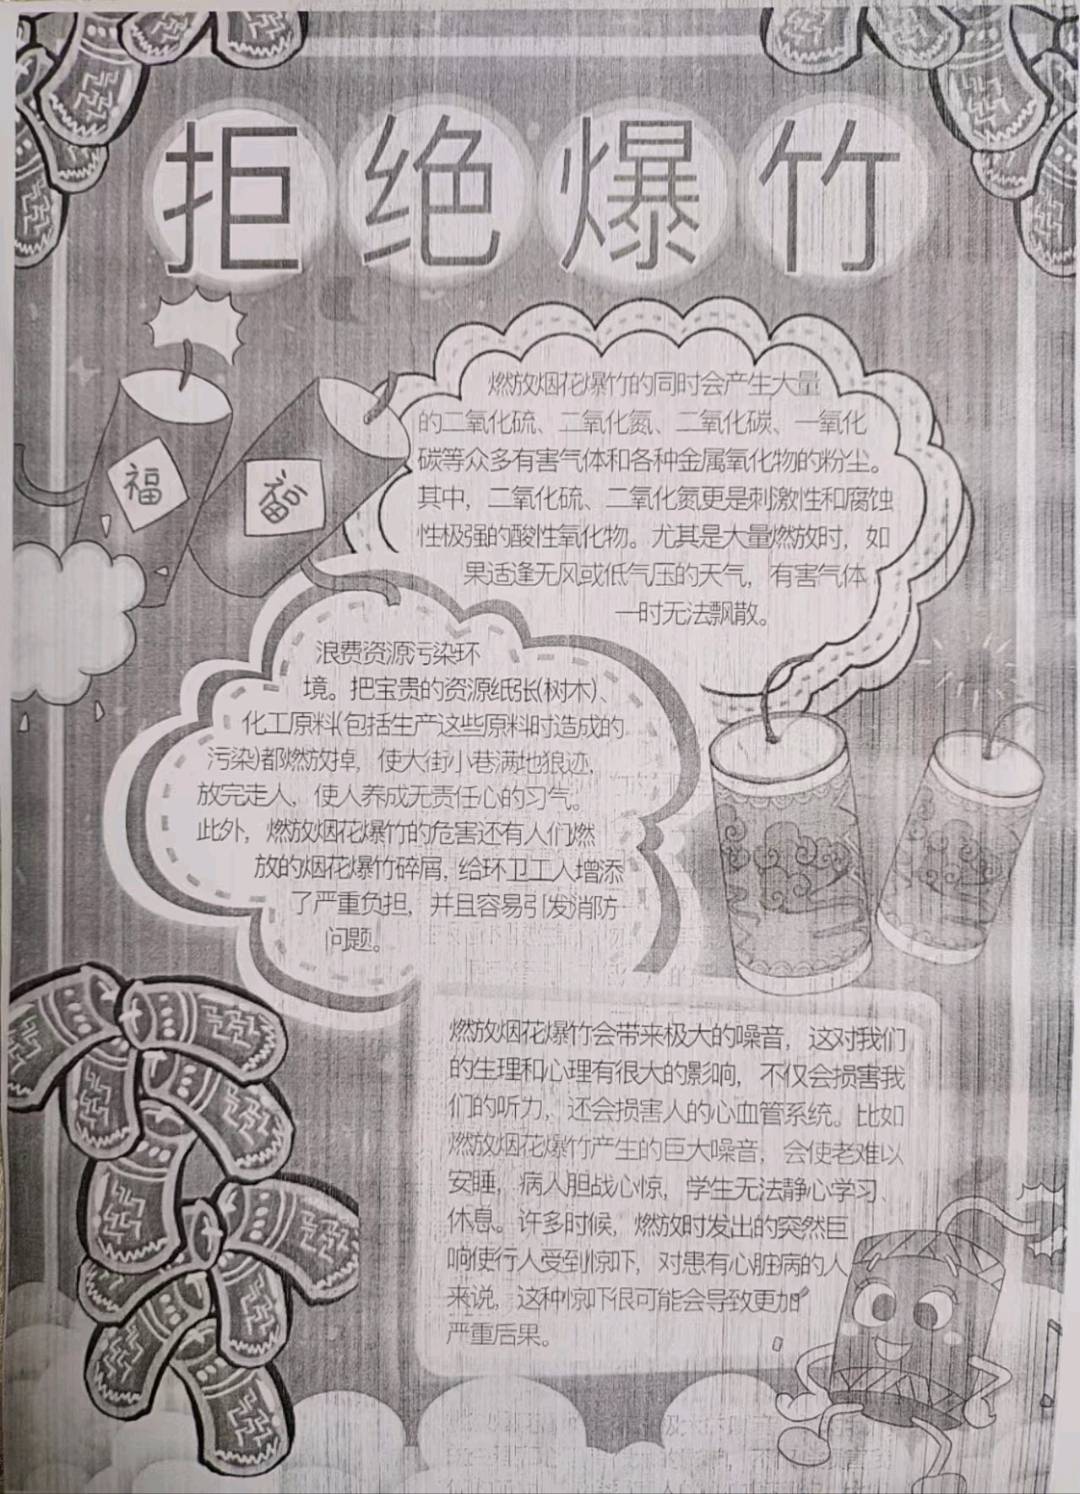 拒绝爆竹
福
福
燃放烟花爆竹的同时会产生大量
的二氧化硫、二氧化氮、二氧化碳、一氧化
碳等众多有害气体和各种金属氧化物的粉尘。
其中，二氧化硫、二氧化氮更是刺激性和腐蚀
性极强的酸性氧化物。尤其是大量燃放时，如
果适逢无风或低气压的天气，有害气体
一时无法飘散。
浪费资源污染环
境。把宝贵的资源纸张(树木)、
化工原料(包括生产这些原料时造成的
污染)都燃放掉，使大街小巷满地狼迹，
放完走人，使人养成无责任心的习气。
此外，燃放烟花爆竹的危害还有人们燃
放的烟花爆竹碎屑，给环卫工人增添
了严重负担，并且容易引发消防
问题。
燃放烟花爆竹会带来极大的噪音，这对我们
的生理和心理有很大的影响，不仅会损害我
们的听力，还会损害人的心血管系统。比如
燃放烟花爆竹产生的巨大噪音，会使老难以
安睡，病人胆战心惊，学生无法静心学习、
休息。许多时候，燃放时发出的突然巨
响使行人受到惊吓，对患有心脏病的人
来说，这种惊吓很可能会导致更加
严重后果。